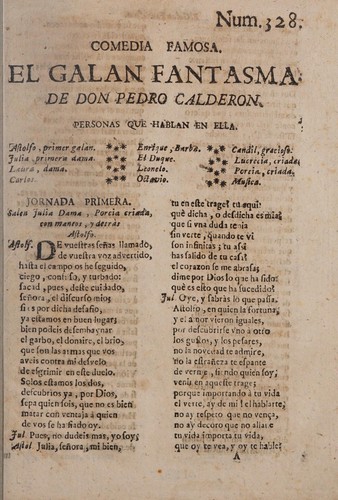 Num. 328.
COMEDIA FAMOSA.
EL GALAN FANTASMA
DE DON PEDRO CALDERON.
PERSONAS QUE HABLAN EN ELLA.
Astolfo, primer galan.
Julia, primera dama.
Laura, dama.
Carlos.
Enrique, Barba.
El Duque.
Leonelo.
Octavio.
Candil, gracioso.
Lucrecia, criada.
Porcia, criada.
Musica.
JORNADA PRIMERA.
Salen Julia Dama, Porcia criada,
con mantos, y detrás
Astolfo.
Astolf. DE vuestras señas llamado,
de vuestra voz advertido,
hasta el campo os he seguido,
ciego, confuso, y turbado:
sacad, pues, deste cuidado,
señora, el discurso mio;
si es por dicha desafio,
ya estamos en buen lugar;
bien podeis desembaynar
el garbo, el donaire, el brio,
que son las armas que vos
aveis contra mi desvelo
de esgrimir en este duelo.
Solos estamos los dos,
descubrios ya, por Dios,
sepa quien sois, que no es bien
matar con ventaja à quien
de vos se ha fiado oy.
Jul. Pues, no dudeis mas, yo soy;
Ast. Julia, señora, mi bien,
tu en este trage! tu aqui!
què dicha, o desdicha es mia;
que si una duda tenia
sin verte, quando te vì
son infinitas; tu asi
has salido de tu casa!
el corazon se me abrasa;
dime por Dios lo que ha sido;
què es esto que ha sucedido;
Jul. Oye, y sabràs lo que pasa.
Astolfo, en quien la fortuna,
y el amor vieron iguales,
por descubrirse uno à otro
los gustos, y los pesares,
no la novedad te admire,
no la estrañeza te espante
de verme, siendo quien soy,
venir en aqueste trage;
porque importando à tu vida
el verte, ay de mi! el hablarte,
no ay respeto que no venza,
no ay decoro que no allane
tu vida importa tu vida,
que oy te vea, y oy te hable;
A